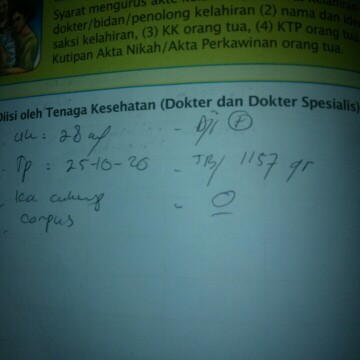 Syarat mengurus akte
dokter/bidan/penolong kelahiran (2) nama dan
saksi kelahiran, (3) KK orang tua, (4) KTP orang tua
Kutipan Akta Nikah/Akta Perkawinan orang tua.
Diisi oleh Tenaga Kesehatan (Dokter dan Dokter Spesialis)
uk : 28 - DJJ +
TP : 25-10-20 - TBJ 1157 gr
corpus